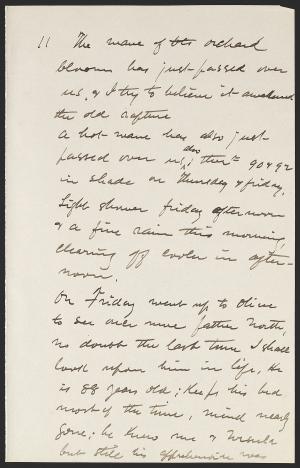 11 The wave of the orchard
bloom has just passed over
us, & I try to believe it awakened
the old rapture
A hot wave has also just
passed over us, also ther. 90 & 92
in shade on Thursday & Friday.
Light shower Friday afternoon
& a fine rain this morning,
clearing off cooler in after-
noon.
On Friday went up to Olive
to see over more father North,
no doubt the last time I shall
look upon him in life, He
is 88 years old; keeps his bed
most of the time, mind nearly
gone; he knew me & Ursula
but still his apprehension was